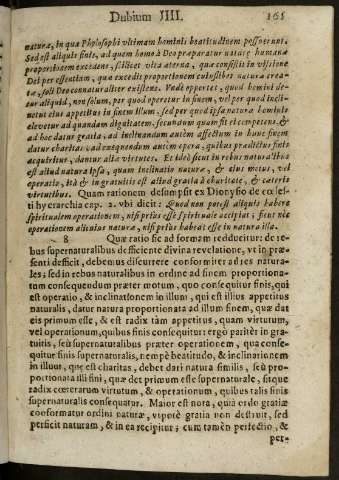 Dubium IIII. 165
natura, in qua Philosophi vltimam hominis beatitudinem possuerunt.
Sed est aliquis finis, ad quem homo à Deo præparatur naturæ humanæ
proportionem excedens, scilicet vita æterna, quæ consistit in visione
Dei per essentiam, quæ excedit proportionem cuiuslibet naturæ crea-
tæ, soli Deo connaturaliter existens. Vnde oportet, quod homini de-
tur aliquid, non solum, per quod operetur in finem, vel per quod incli-
netur eius appetitus in finem illum, sed per quod ipsa natura hominis
elevetur ad quandam dignitatem, secundum quam sit ei competens, &
ad hoc datur gratia, ad inclinandum autem affectum in hunc finem
datur charitas, ad exequendum autem opera, quibus prædictus finis
acquiritur, dantur aliæ virtutes. Et ideo sicut in rebus naturalibus
est aliud natura ipsa, quam inclinatio naturæ, & eius motus, vel
operatio, ità & in gratuitis est aliud gratia à charitate, & cæteris
virtutibus. Quam rationem desumpsit ex Dionysio de cœlesti
hyerarchia cap. 2. vbi dicit: Quod non potest aliquis habere
spiritualem operationem, nisi prius esse spirituale accipiat, sicut nec
operationem alicuius naturæ, nisi prius habeat esse in natura illa.
8 Quæ ratio sic ad formam redducitur: de re-
bus supernaturalibus deficiente divina revelatione, vt in præ-
senti defficit, debemus discurrere conformiter ad res natura-
les; sed in rebus naturalibus in ordine ad finem proportiona-
tum consequendum præter motum, quo consequitur finis, qui
est operatio, & inclinationem in illum, qui est illius appetitus
naturalis, datur natura proportionata ad illum finem, quæ dat
eis primum esse, & est radix tàm appetitus, quam virtutum,
vel operationum, quibus finis consequitur: ergò paritèr in gra-
tuitis, seù supernaturalibus præter operationem, qua conse-
quitur finis supernaturalis, nempè beatitudo, & inclinationem
in illum, quæ est charitas, debet dari natura similis, seù pro-
portionata illi fini, quæ det primum esse supernaturale, sitque
radix cœterarum virtutum, & operationum, quibus talis finis
supernaturalis consequatur. Maior est nota, quia ordo gratiæ
conformatur ordini naturæ, vtpotè gratia non destruit, sed
perficit naturam, & in ea recipitur; cum tamèn perfectio, &
per-